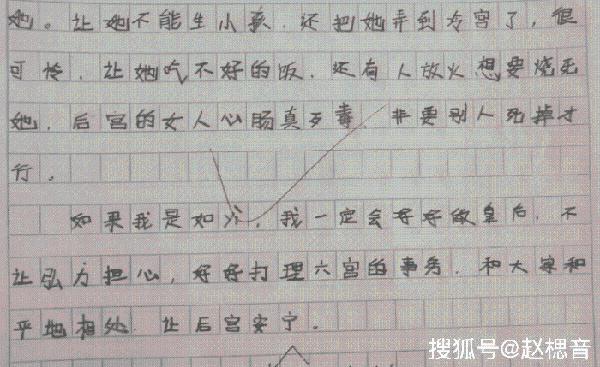 她。让她不能生小孩,还把她弄到冷宫了,很
可怜,让她吃不好的饭,还有人放火想要烧死
她,后宫的女人心肠真歹毒,非要别人死掉才
行。
如果我是如,我一定会好好做皇后,不
让弘力担心,好好打理六宫的事务,和大家和
平地相处,让后宫安宁。
搜狐号@赵楒音